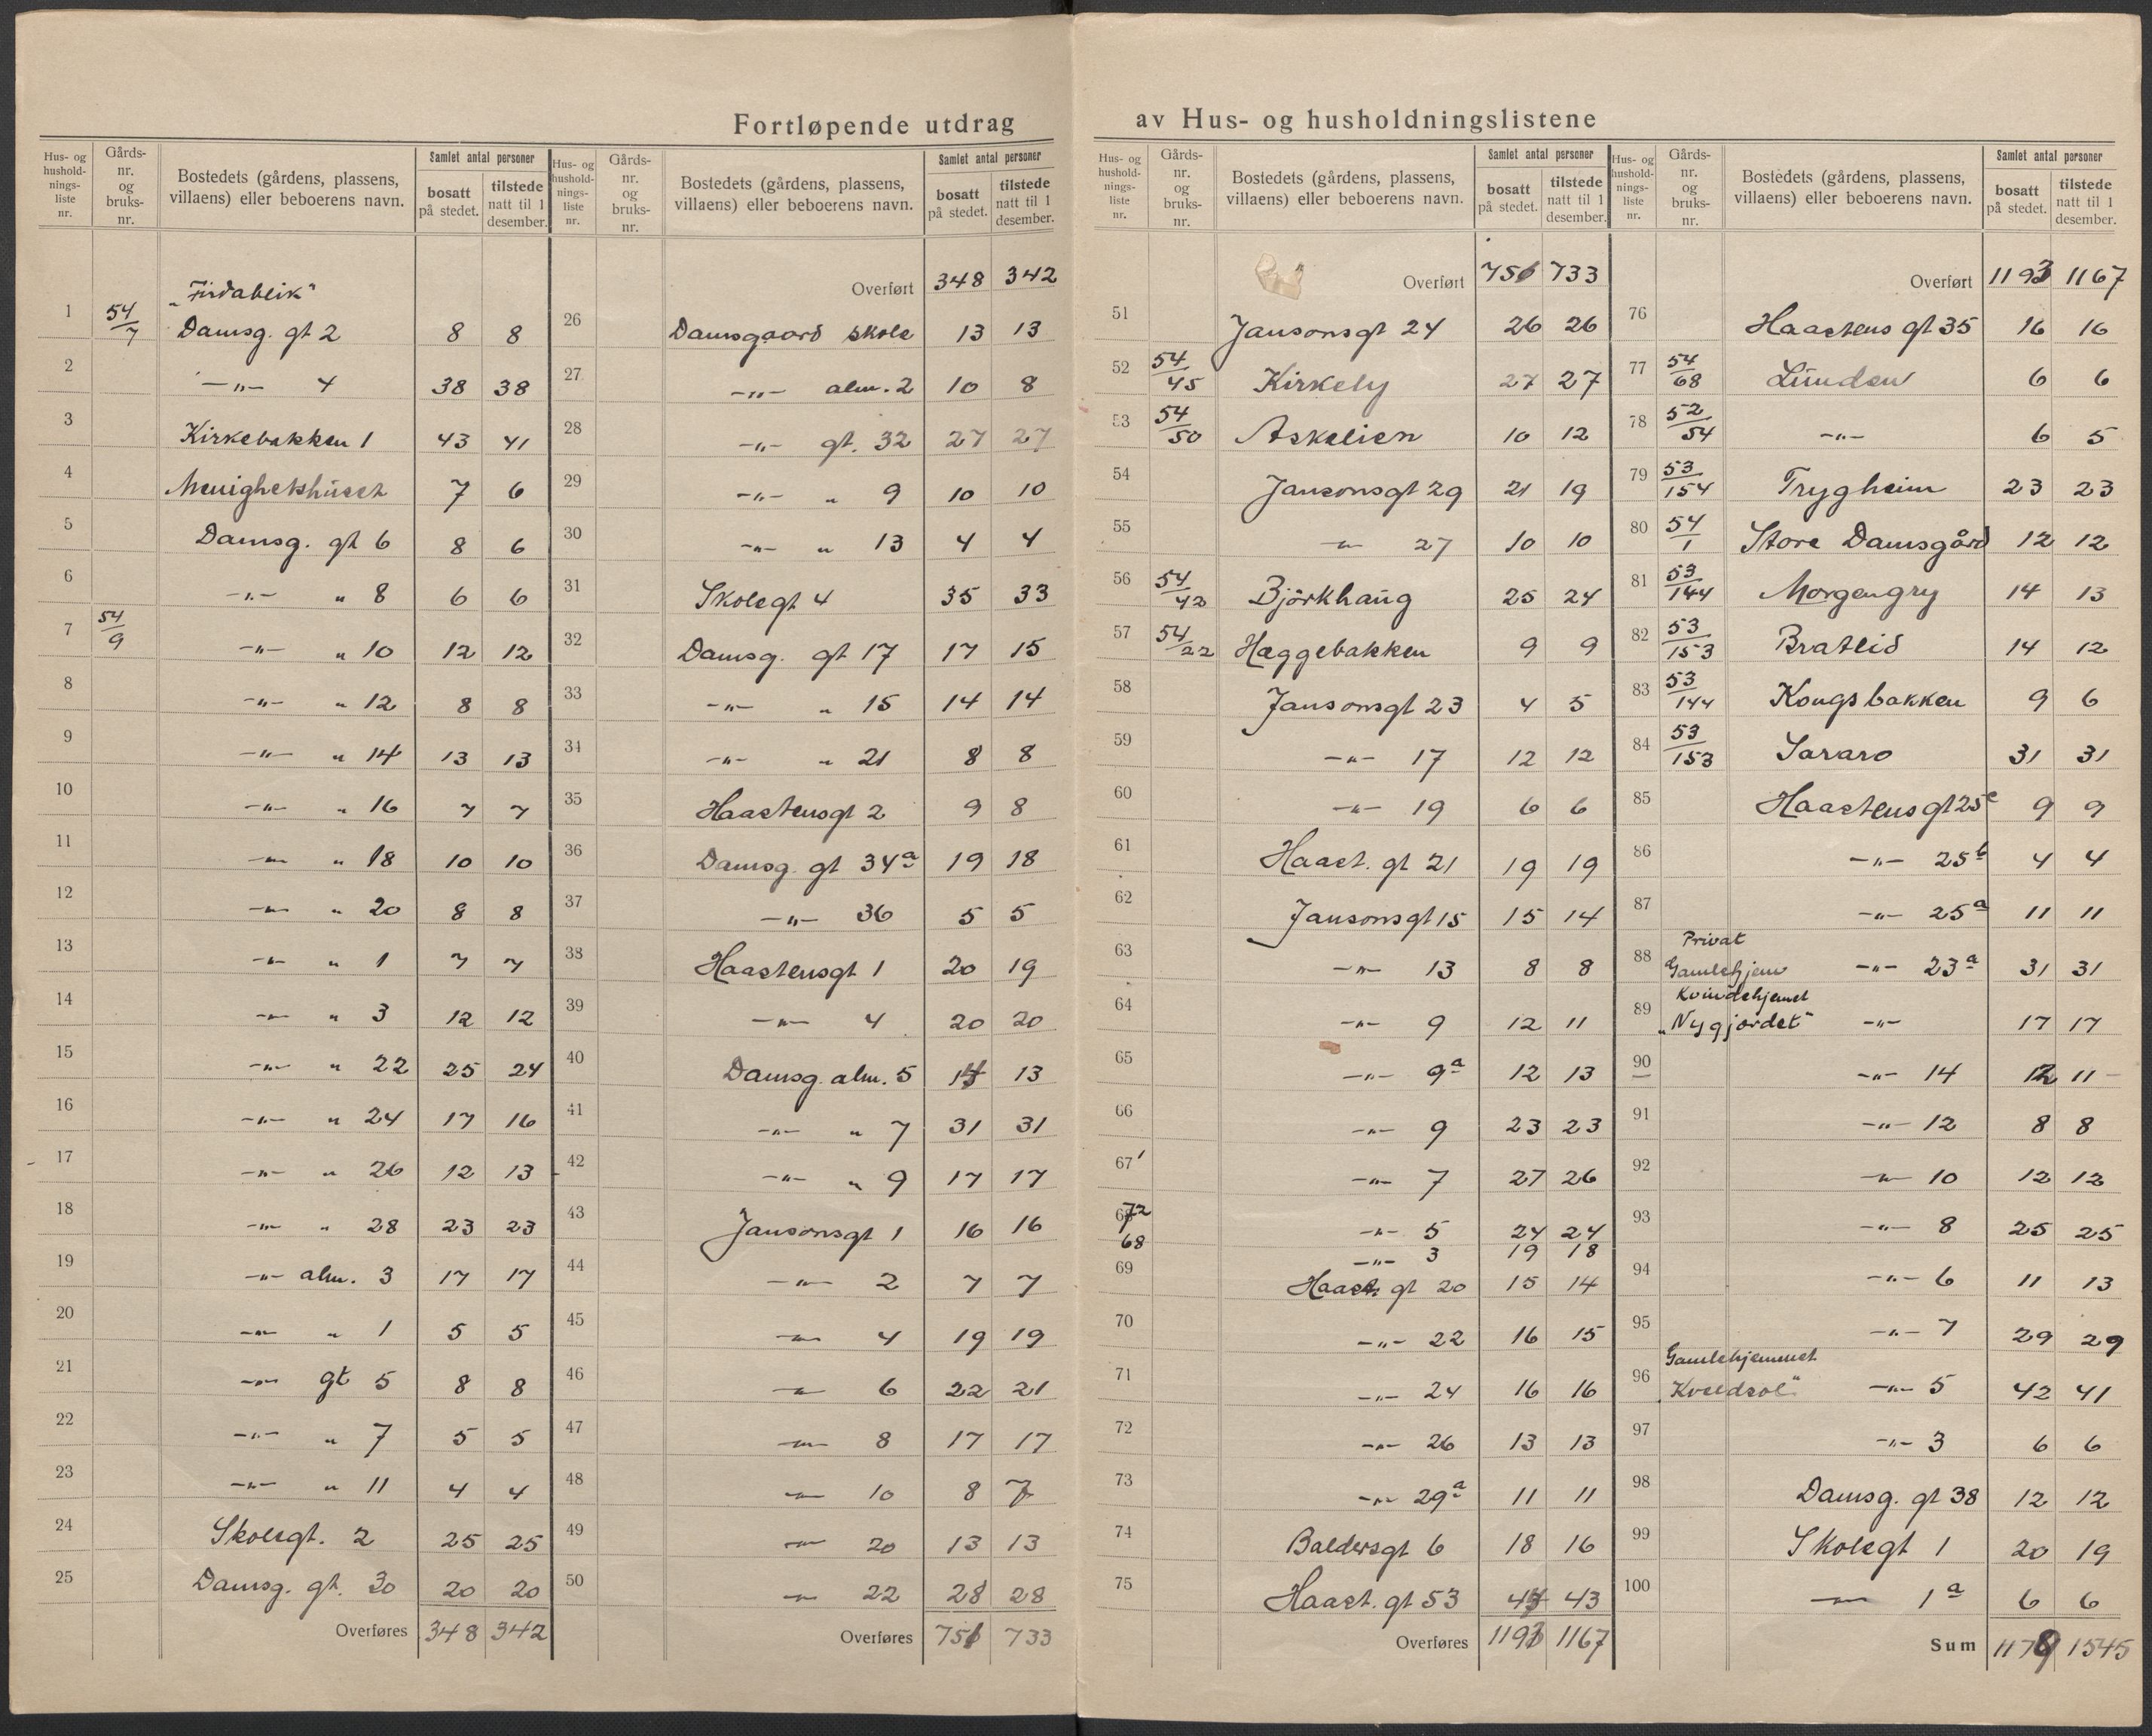 Fortløpende utdrag av Hus- og husholdningslistene
Hus- og husholdningsliste nr. | Gårdsnr. og bruksnr. | Bostedets (gårdens, plassens, villaens) eller beboerens navn. | Samlet antal personer bosatt på stedet. | tilstede natt til 1 desember.
"Firdablik"
1 54/7 Damsg. gt 2 8 8
2 -"- 4 38 38
3 Kirkebakken 1 43 41
4 Menighetshuset 7 6
5 Damsg. gt 6 8 6
6 -"- " 8 6 6
7 54/9 -"- " 10 12 12
8 -"- " 12 8 8
9 -"- " 14 13 13
10 -"- " 16 7 7
11 -"- " 18 10 10
12 -"- " 20 8 8
13 -"- " 1 7 7
14 -"- " 3 12 12
15 -"- " 22 25 24
16 -"- " 24 17 16
17 -"- " 26 12 13
18 -"- " 28 23 23
19 -"- alm. 3 17 17
20 -"- " 1 5 5
21 -"- gt 5 8 8
22 -"- " 7 5 5
23 -"- " 11 4 4
24 Skolegt. 2 25 25
25 Damsg. gt. 30 20 20
Overføres 348 342
Hus- og husholdningsliste nr. | Gårdsnr. og bruksnr. | Bostedets (gårdens, plassens, villaens) eller beboerens navn. | Samlet antal personer bosatt på stedet. | tilstede natt til 1 desember.
Overført 348 342
26 Damsgaard skole 13 13
27 -"- alm. 2 10 8
28 -"- gt. 32 27 27
29 -"- " 9 10 10
30 -"- " 13 4 4
31 Skolegt 4 35 33
32 Damsg. gt 17 17 15
33 -"- " 15 14 14
34 -"- " 21 8 8
35 Haastensgt 2 9 8
36 Damsg. gt 34a 19 18
37 -"- 36 5 5
38 Haastensgt 1 20 19
39 -"- 4 20 20
40 Damsg. alm. 5 13
41 -"- " 7 31 31
42 -"- " 9 17 17
43 Jansonsgt 1 16 16
44 -"- 2 7 7
45 -"- 4 19 19
46 -"- 6 22 21
47 -"- 8 17 17
48 -"- 10 8 7
49 -"- 20 13 13
50 -"- 22 28 28
Overføres 733
Hus- og husholdningsliste nr. | Gårdsnr. og bruksnr. | Bostedets (gårdens, plassens, villaens) eller beboerens navn. | Samlet antal personer bosatt på stedet. | tilstede natt til 1 desember.
Overført 733
51 Jansonsgt 24 26 26
52 54/45 Kirkely 27 27
53 54/50 Askelien 10 12
54 Jansonsgt 29 21 19
55 -"- 27 10 10
56 54/42 Björkhaug 25 24
57 54/22 Hæggebakken 9 9
58 Jansonsgt 23 4 5
59 -"- 17 12 12
60 -"- 19 6 6
61 Haast. gt 21 19 19
62 Jansonsgt 15 15 14
63 -"- 13 8 8
64 -"- 9 12 11
65 -"- 9a 12 13
66 -"- 9 23 23
67 -"- 7 27 26
72 -"- 5 24 24
68 -"- 3 19 18
69 Haast. gt 20 15 14
70 -"- 22 16 15
71 -"- 24 16 16
72 -"- 26 13 13
73 -"- 29a 11 11
74 Baldersgt 6 18 16
75 Haast. gt 53 43
Overføres 1167
Hus- og husholdningsliste nr. | Gårdsnr. og bruksnr. | Bostedets (gårdens, plassens, villaens) eller beboerens navn. | Samlet antal personer bosatt på stedet. | tilstede natt til 1 desember.
Overført 1193 1167
76 Haastens gt 35 16 16
77 54/68 Lunden 6 6
78 52/54 -"- 6 5
79 53/154 Trygheim 23 23
80 54/1 Store Damsgård 12 12
81 53/144 Morgengry 14 13
82 53/153 Bratlid 14 12
83 53/144 Kongsbakken 9 6
84 53/153 Sararo 31 31
85 Haastensgt 25c 9 9
86 -"- 25b 4 4
87 -"- 25a 11 11
Privat
88 Gamlehjem -"- 23a 31 31
Kvindehjemmet
89 "Nygjordet" -"- 17 17
90 -"- 14 12 11
91 -"- 12 8 8
92 -"- 10 12 12
93 -"- 8 25 25
94 -"- 6 11 13
95 -"- 7 29 29
Gamlehjemmet
96 "Kveldsol" -"- 5 42 41
97 -"- 3 6 6
98 Damsg. gt 38 12 12
99 Skolegt 1 20 19
100 -"- 1a 6 6
Sum 1545